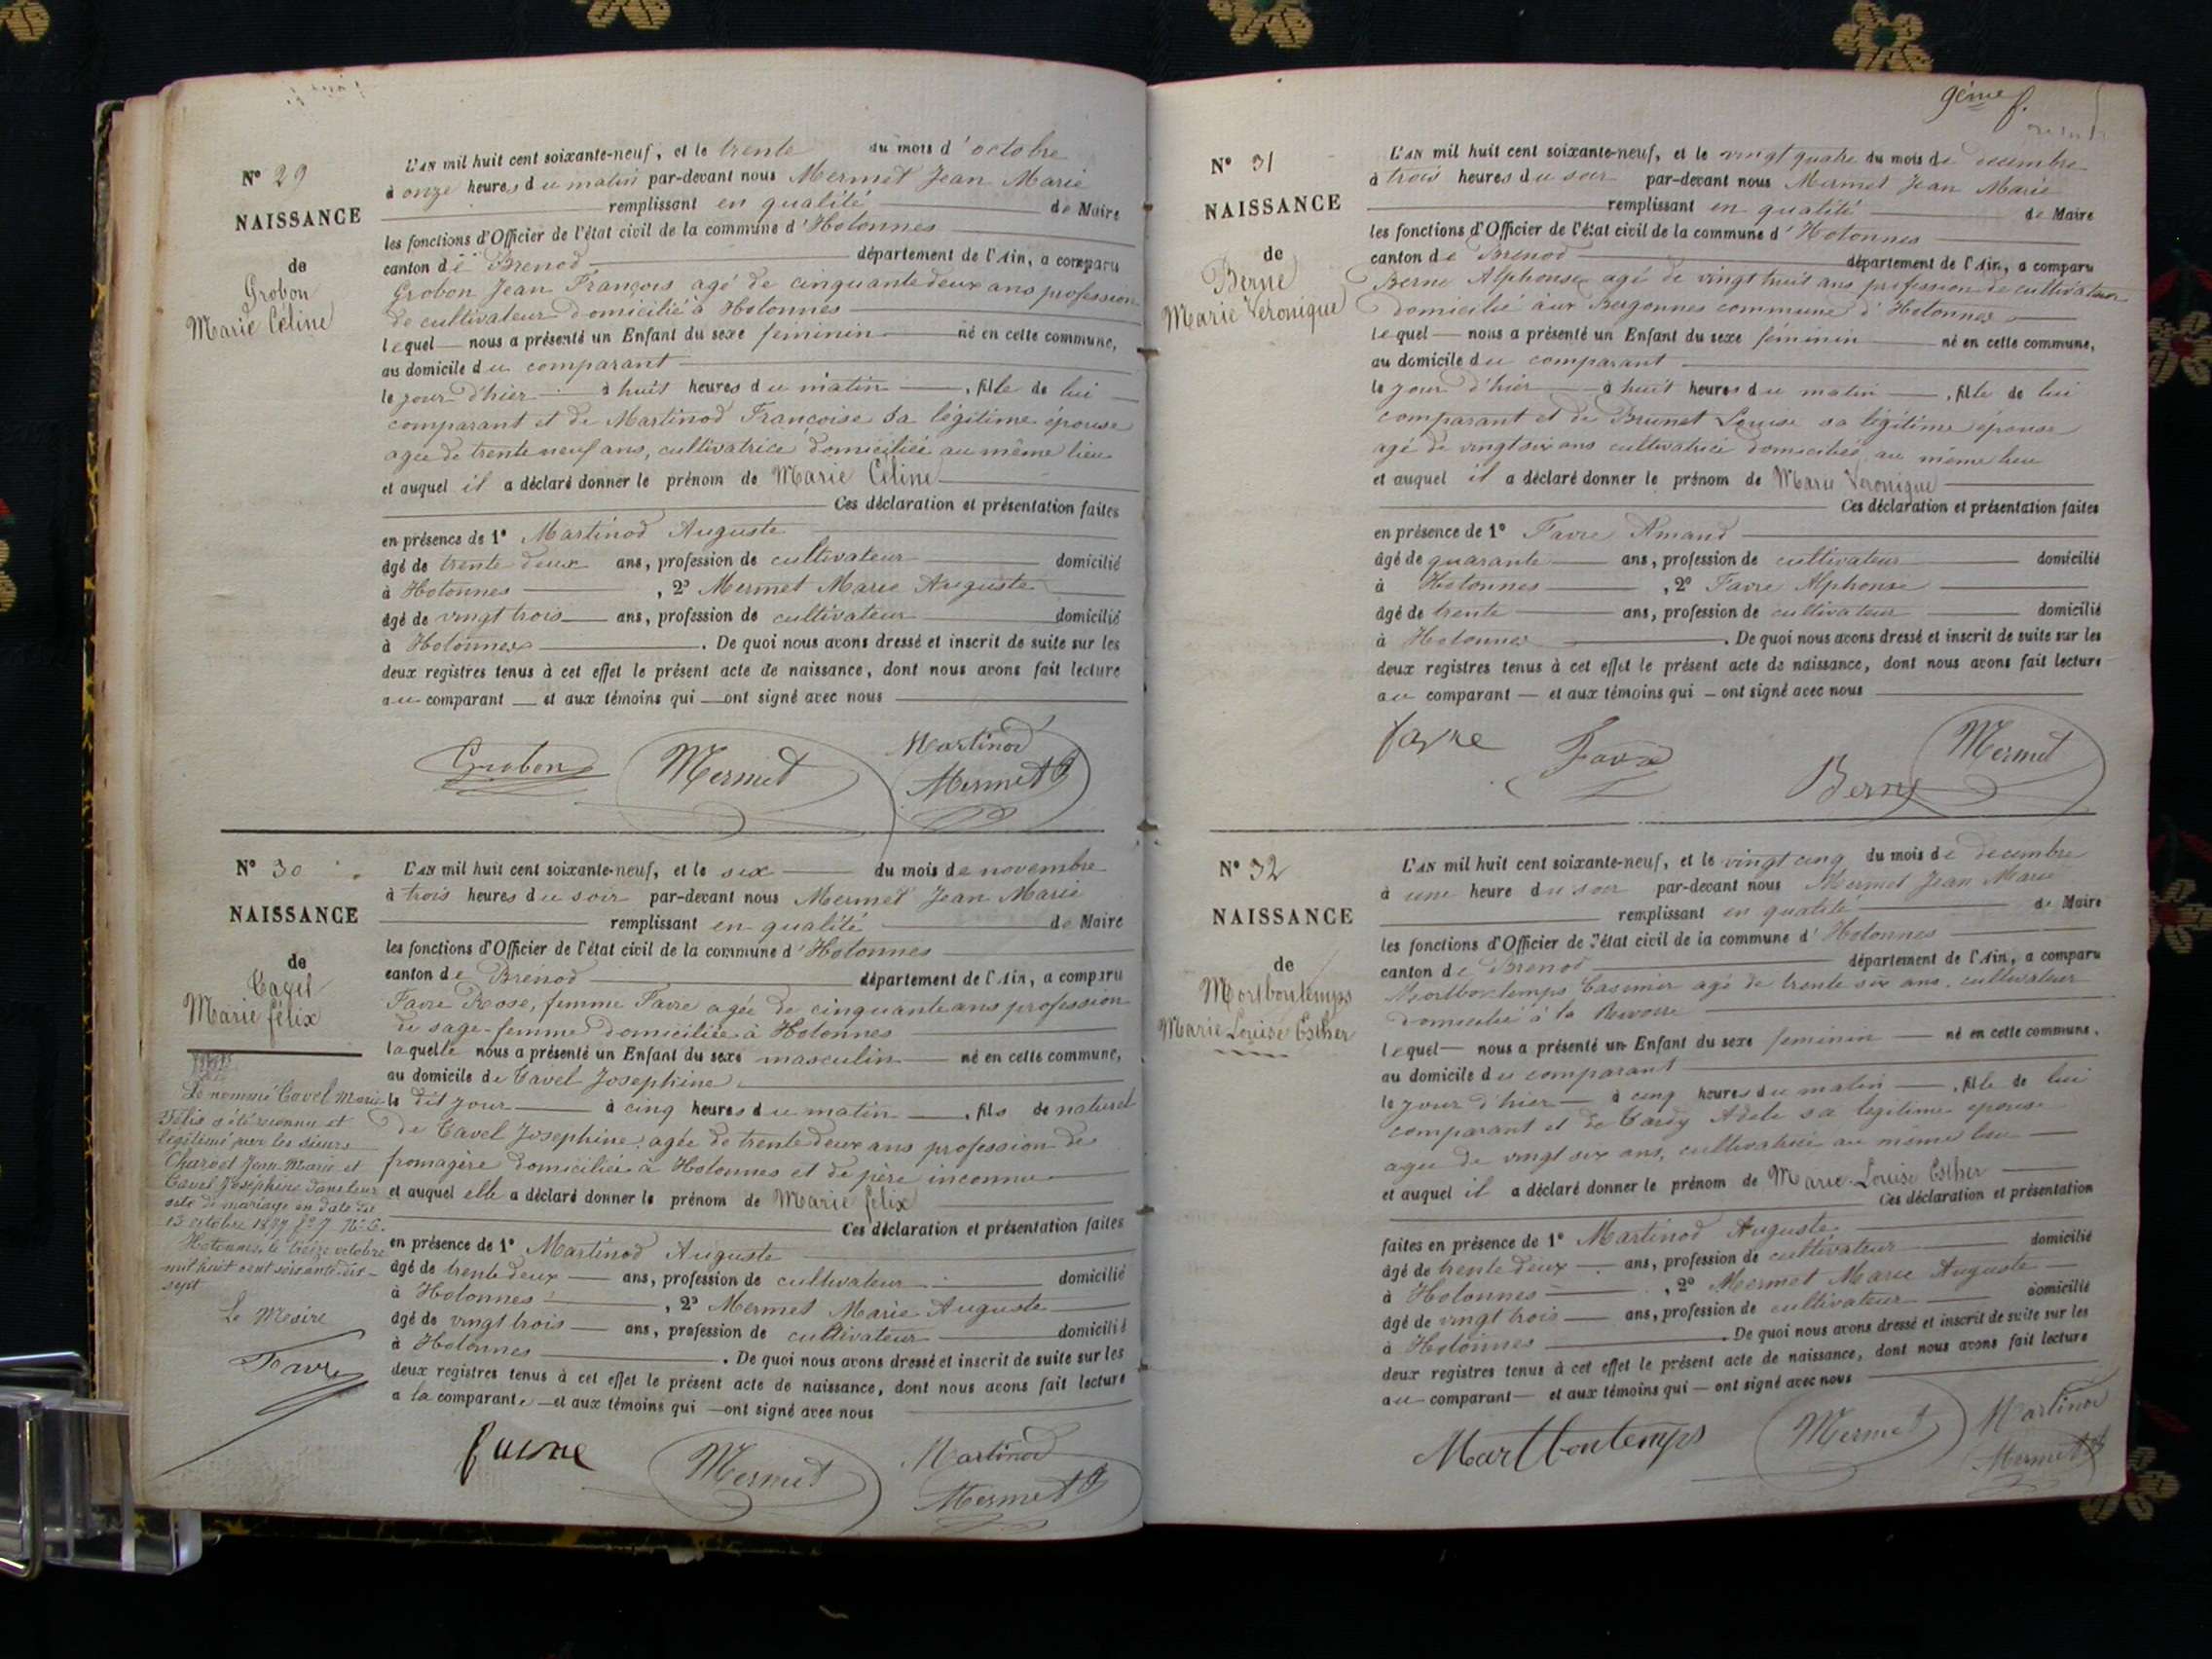 N° 29
NAISSANCE
de
Grobon
Marie Céline
L'AN mil huit cent soixante-neuf, et le trente du mois d'octobre
à onze heures du matin par-devant nous Mermet Jean Marie
remplissant en qualité de Maire
les fonctions d'Officier de l'état civil de la commune d'Hotonnes
canton de Brenod département de l'Ain, a comparu
Grobon Jean François agé de cinquante deux ans profession
de cultivateur domicilié à Hotonnes
lequel nous a présenté un Enfant du sexe féminin né en cette commune,
au domicile du comparant
le jour d'hier à huit heures du matin, fille de lui
comparant et de Martinod Françoise sa légitime épouse
agée de trente neuf ans, cultivatrice domiciliée au même lieu
et auquel il a déclaré donner le prénom de Marie Céline
Ces déclaration et présentation faites
en présence de 1° Martinod Auguste
âgé de trente deux ans, profession de cultivateur domicilié
à Hotonnes, 2° Mermet Marie Auguste
âgé de vingt trois ans, profession de cultivateur domicilié
à Hotonnes. De quoi nous avons dressé et inscrit de suite sur les
deux registres tenus à cet effet le présent acte de naissance, dont nous avons fait lecture
au comparant et aux témoins qui ont signé avec nous
Grobon Mermet Martinod
Mermet
N° 30
NAISSANCE
de
Cavel
Marie félix
Le nommé Cavel Marie
Félix a été reconnu et
légitimé par les sieurs
Charvet Jean Marie et
Cavel Joséphine dans leur
acte de mariage en date du
13 octobre 1877 f° 7 N° 6.
Hotonnes, le treize octobre
mil huit cent soixante dix-
sept
Le Maire
Favre
L'AN mil huit cent soixante-neuf, et le six du mois de novembre
à trois heures du soir par-devant nous Mermet Jean Marie
remplissant en qualité de Maire
les fonctions d'Officier de l'état civil de la commune d'Hotonnes
canton de Brénod département de l'Ain, a comparu
Favre Rose, femme Favre agée de cinquante ans profession
de sage-femme domiciliée à Hotonnes
laquelle nous a présenté un Enfant du sexe masculin né en cette commune,
au domicile de Cavel Josephine
le dit jour à cinq heures du matin, fils de naturel
de Cavel Josephine agée de trente deux ans profession de
fromagère domiciliée à Hotonnes et de père inconnu
et auquel elle a déclaré donner le prénom de Marie félix
Ces déclaration et présentation faites
en présence de 1° Martinod Auguste
âgé de trente deux ans, profession de cultivateur domicilié
à Hotonnes, 2° Mermet Marie Auguste
âgé de vingt trois ans, profession de cultivateur domicilié
à Hotonnes. De quoi nous avons dressé et inscrit de suite sur les
deux registres tenus à cet effet le présent acte de naissance, dont nous avons fait lecture
a la comparante et aux témoins qui ont signé avec nous
Mermet Martinod
Mermet
9ème f.
N° 31
NAISSANCE
de
Berne
Marie Veronique
L'AN mil huit cent soixante-neuf, et le vingt quatre du mois de decembre
à trois heures du soir par-devant nous Mermet Jean Marie
remplissant en qualité de Maire
les fonctions d'Officier de l'état civil de la commune d'Hotonnes
canton de Brenod département de l'Ain, a comparu
Berne Alphonse agé de vingt huit ans profession de cultivateur
domicilié aux Bergonnes commune d'Hotonnes
lequel nous a présenté un Enfant du sexe féminin né en cette commune,
au domicile du comparant
le jour d'hier à huit heures du matin, fille de lui
comparant et de Brunet Louise sa légitime épouse
agé de vingt six ans cultivatrice domiciliée au même lieu
et auquel il a déclaré donner le prénom de Marie Veronique
Ces déclaration et présentation faites
en présence de 1° Favre Amand
âgé de quarante ans, profession de cultivateur domicilié
à Hotonnes, 2° Favre Alphonse
âgé de trente ans, profession de cultivateur domicilié
à Hotonnes. De quoi nous avons dressé et inscrit de suite sur les
deux registres tenus à cet effet le présent acte de naissance, dont nous avons fait lecture
au comparant et aux témoins qui ont signé avec nous
favre Favre Berne Mermet
N° 32
NAISSANCE
de
Mortbontemps
Marie Louise Esther
L'AN mil huit cent soixante-neuf, et le vingt cinq du mois de decembre
à une heure du soir par-devant nous Mermet Jean Marie
remplissant en qualité de Maire
les fonctions d'Officier de l'état civil de la commune d'Hotonnes
canton de Brenod département de l'Ain, a comparu
Mortbontemps Casimir agé de trente six ans, cultivateur
domicilié à la
lequel nous a présenté un Enfant du sexe féminin né en cette commune,
au domicile du comparant
le jour d'hier à cinq heures du matin, fille de lui
comparant et de Tardy Adele sa legitime epouse
agée de vingt six ans, cultivatrice au même lieu
et auquel il a déclaré donner le prénom de Marie Louise Esther
Ces déclaration et présentation
faites en présence de 1° Martinod Auguste
âgé de trente deux ans, profession de cultivateur domicilié
à Hotonnes, 2° Mermet Marie Auguste
âgé de vingt trois ans, profession de cultivateur domicilié
à Hotonnes. De quoi nous avons dressé et inscrit de suite sur les
deux registres tenus à cet effet le présent acte de naissance, dont nous avons fait lecture
au comparant et aux témoins qui ont signé avec nous
Martbontemps Mermet Martinod
Mermet